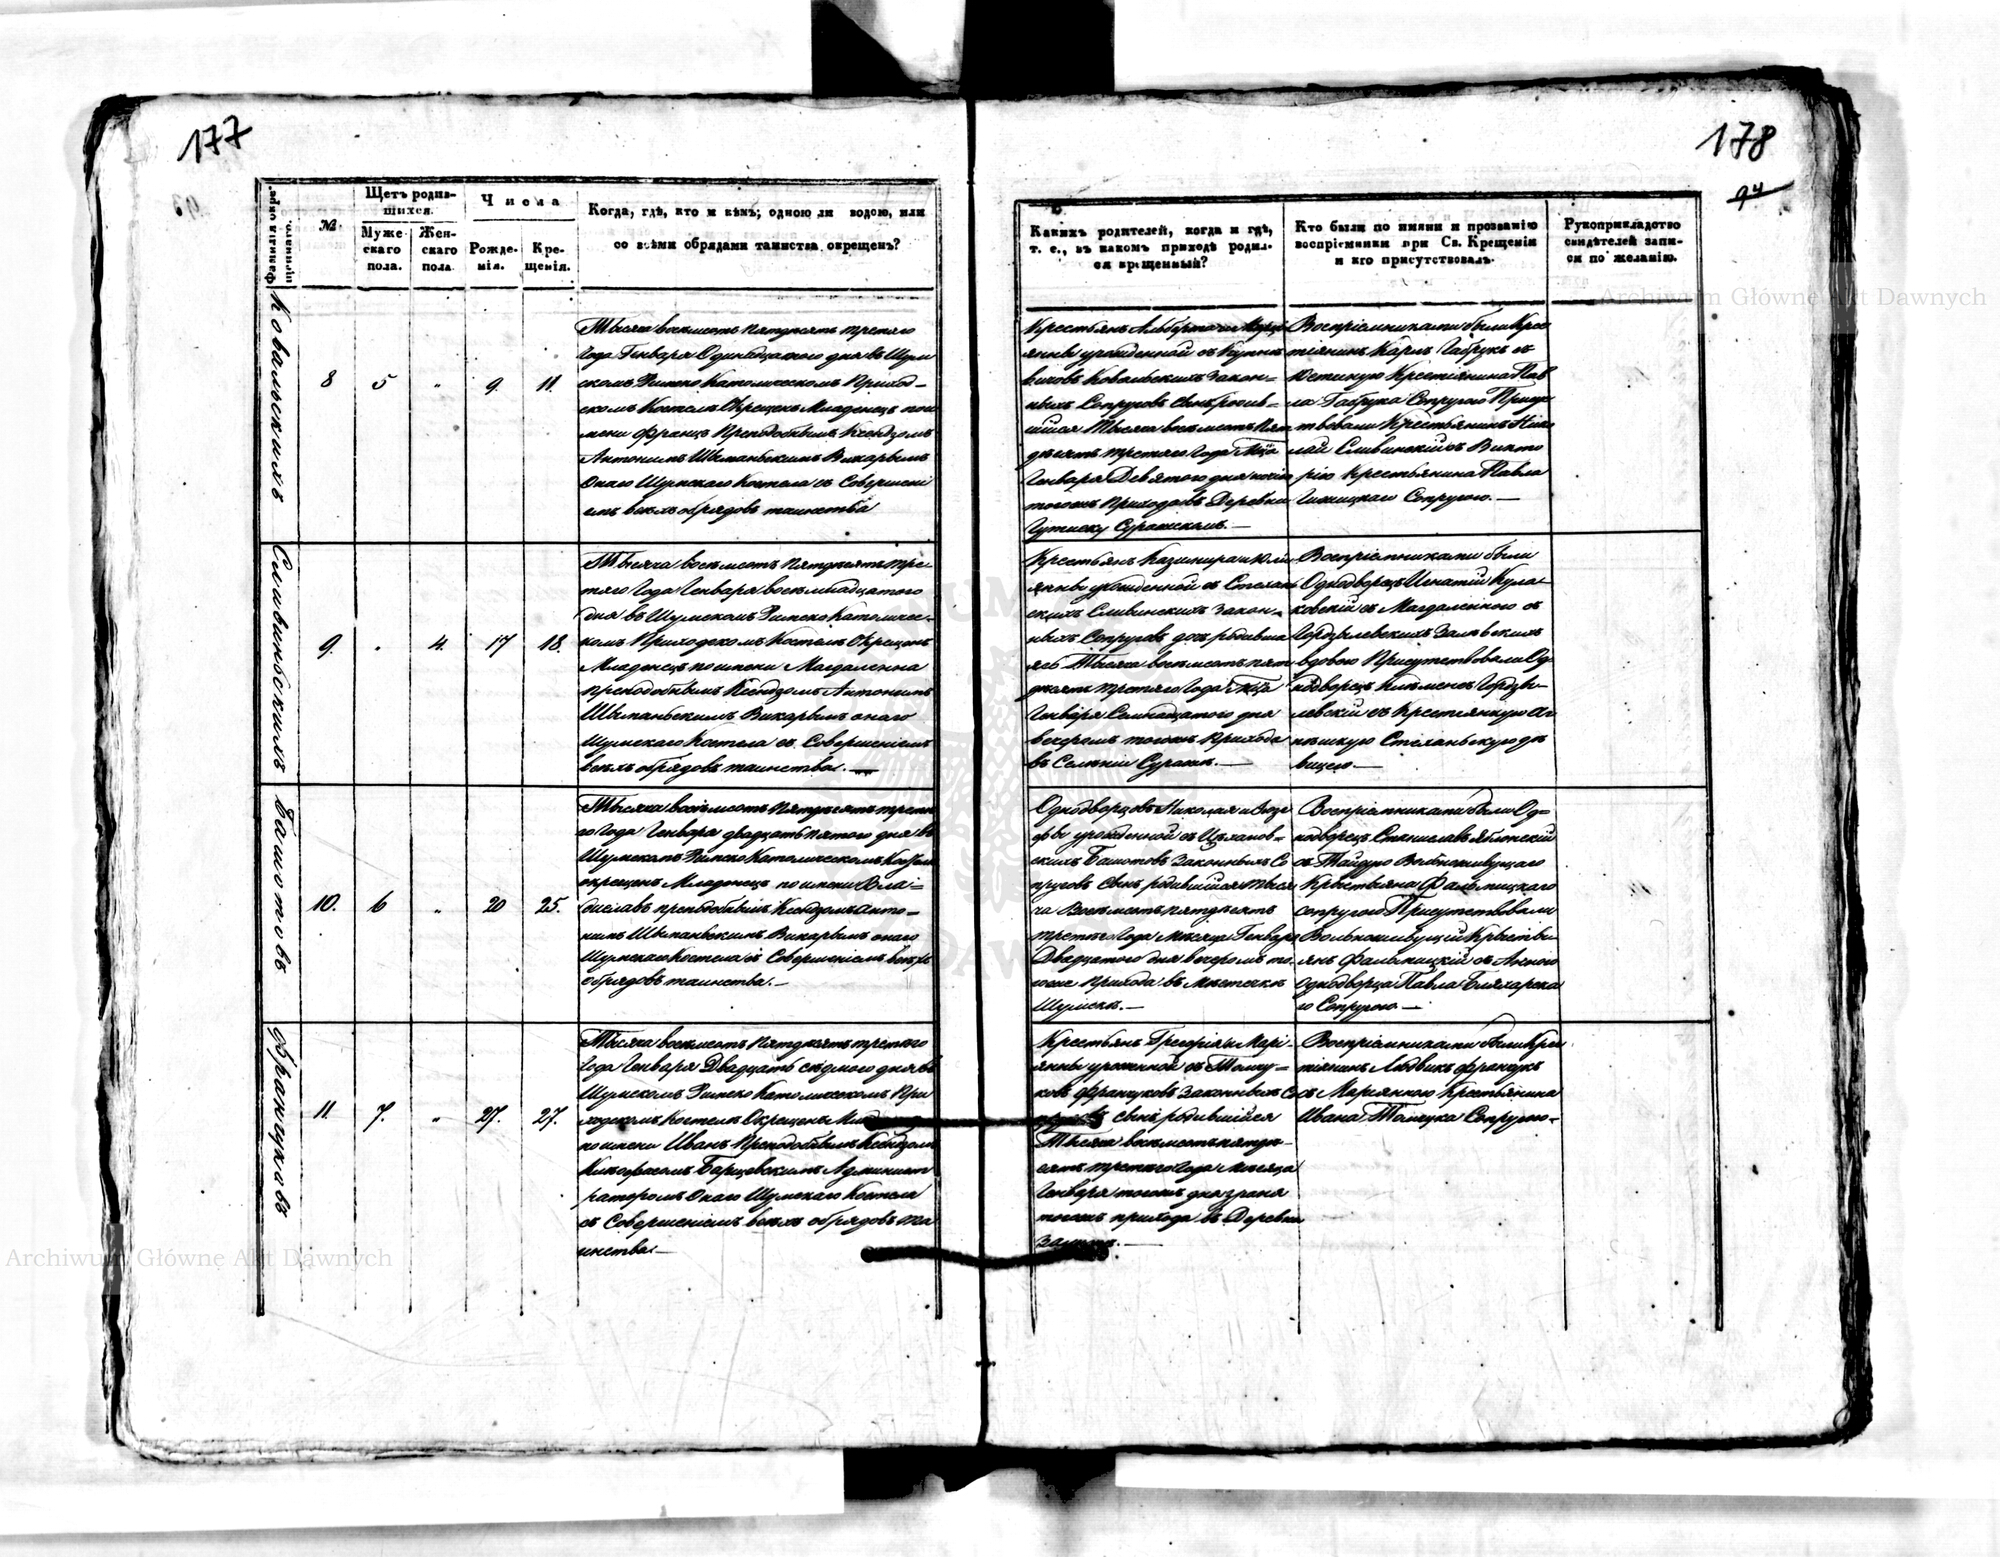 177
Фамилія окрещеннаго.
№.
Щетъ родив-
шихся.
Муже-
скаго
пола.
Жен-
скаго
пола.
Числа
Рожде-
нія.
Кре-
щенія.
Когда, гдѣ, кто и кѣмъ; одною ли водою, или
со всѣми обрядами таинства окрещенъ?
Ковальскихъ
8
5
"
9.
11.
Тысяча восемсотъ пятдесятъ третяго
Года Генваря Одинадцатого дня въ Шум
скомъ Римско Католическомъ Приход-
скомъ Костелѣ Окрещенъ Младенецъ по и
мени Францъ Преподобнымъ Ксендзомъ
Антонимъ Шиманьскимъ Викарымъ
Онаго Шумскаго Костела съ Совершені
емъ всѣхъ обрядовъ таинства
Сливинскихъ
9.
"
4.
17
18.
Тысяча восемсотъ пятдесятъ тре-
тяго Года Генваря восемнадцатого
дня въ Шумскомъ Римско Католичес-
комъ Приходскомъ Костелѣ Окрещенъ
Младенецъ по имени Магдаленна
преподобнымъ Ксендзомъ Антонимъ
Шиманьскимъ Викарымъ онаго
Шумскаго Костела съ Совершеніемъ
всѣхъ обрядовъ таинства.
Башотовъ
10.
6
"
20
25.
Тысяча восемсотъ пятдесятъ третя
го Года Генваря двадцать пятого дня въ
Шумскомъ Римско Католическомъ
окрещенъ Младенецъ по имени Вла-
диславъ преподобнымъ Ксендзомъ Анто-
нимъ Шиманьскимъ Викарымъ онаго
Шумскаго Костела съ Совершеніемъ всѣхъ
обрядовъ таинства.
Француковъ
11
7.
"
27.
27.
Тысяча восемсотъ пятдесятъ третяго
Года Генваря Двадцать седмого дня въ
Шумскомъ Римско Католическомъ При
ходскомъ Костелѣ Окрещенъ
по имени Иванъ Преподобнымъ Ксендзомъ
Барщевскимъ Админист
раторомъ Онаго Шумскаго Костела
съ Совершеніемъ всѣхъ обрядовъ та
инства.
178
94
Какихъ родителей, когда и гдѣ,
т. е., въ какомъ приходѣ родил-
ся крещенный?
Кто были по имяни и прозванію
воспріемники при Св. Крещеніи
и кто присутствовалъ.
Рукоприкладство
свидѣтелей запи-
си по желанію.
Крестьянъ Альберта и
янны урожденной съ
Ковальскихъ Закон-
ныхъ Супруговъ сынъ родив-
шійся Тысяча восемсотъ пят
десятъ третяго Года Мца
Генваря Девятого дня
тогожъ Прихода въ Деревни
Гутиску Суражскомъ.
Воспріемниками были Крес
тіянинъ Карлъ Габрукъ съ
Крестіянина Пав
ла Габрука Супругою Присут
твовали Крестьянинъ Нико
лай Сливинскій съ Викто
рію Крестьянина Павла
Супругою.
Крестьянъ Казимира и Юлі
янны урожденной съ
скихъ Сливинскихъ Закон-
ныхъ Супруговъ дочъ родивша
яся Тысяча восемсотъ пят
десятъ третяго Года Мца
Генваря Семнадцатого дня
вечеромъ тогожъ Прихода
въ Селеніи Суражъ.
Воспріемниками были
Однодворецъ Игнатій Кула-
ковскій съ Магдаленною съ
вдовою Присутствовали Од-
нодворецъ Гордзи-
левскій съ Крестіянкую Аг
нѣшкую дѣ
вицею
Однодворцовъ Николая и Юзе
фы урожденной съ Цехановъ-
скихъ Башотовъ Законныхъ Су
пруговъ сынъ родившійся тыся
ча Восемсотъ пятдесятъ
третяго Года Мѣсяца Генваря
Двадцатого дня вечеромъ то-
гоже прихода въ Мѣстечкѣ
Шумскѣ.
Воспріемниками были Од-
нодворецъ Станиславъ Яблонскій
съ Вольноживущаго
Крестьяна Фальмицкаго
супругою Присутствовали
Вольноживущій Крестья-
янъ Фальмицкій съ Анною
Однодворца Павла
го Супругою.
Крестьянъ Грегорія и Марі-
янны урожденной съ Томчу-
ковъ Француковъ Законныхъ Су
сынъ родившійся
Тысяча восемсотъ пятде-
сятъ третяго Года Мѣсяца
Генваря тогожъ дня зрана
тогожъ прихода въ Деревни
Воспріемниками были Крес
тіянинъ Людвикъ Францукъ
съ Маріянною Крестьянина
Ивана Томчука Супругою.
Archiwum Główne Akt Dawnych
Archiwum Główne Akt Dawnych